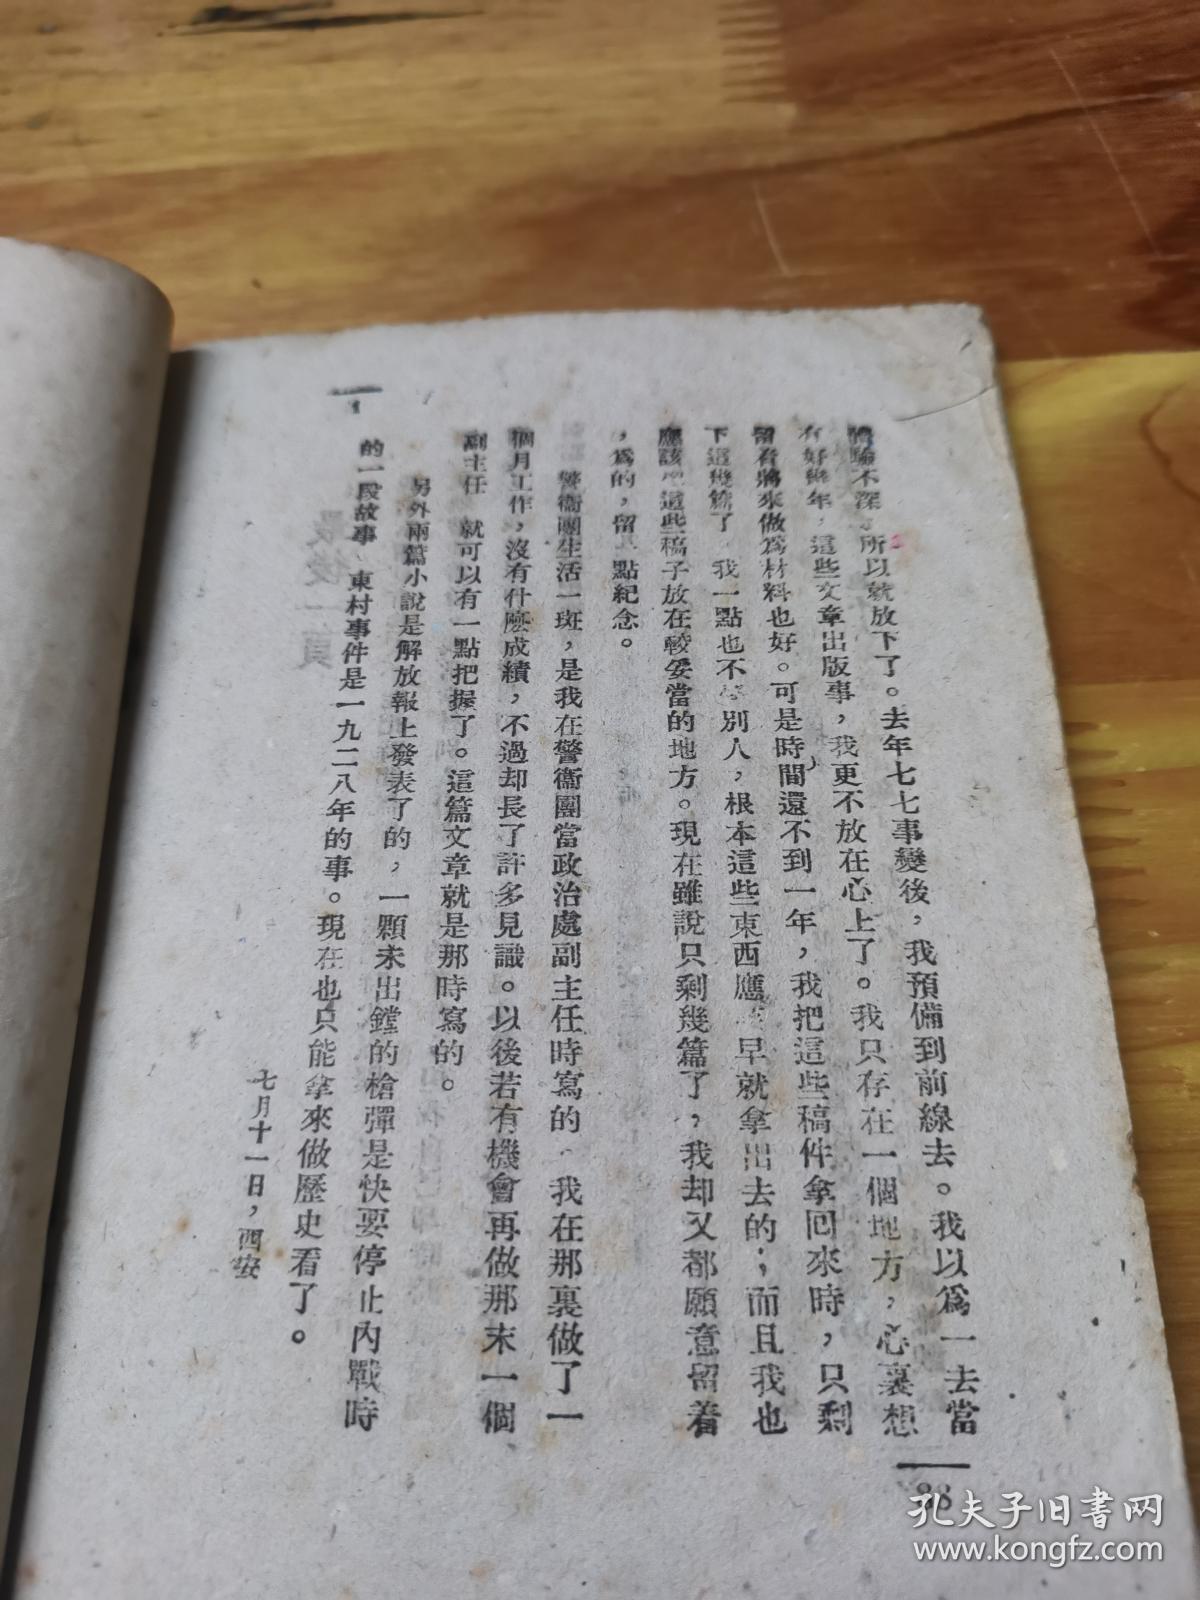 體驗不深，所以就放下了。去年七七事變後，我預備到前線去。我以爲一去當
有好幾年，這些文章出版事，我更不放在心上了。我只存在一個地方，心裏想
留着將來做爲材料也好。可是時間還不到一年，我把這些稿件拿回來時，只剩
下這幾篇了 我一點也不 別人，根本這些東西應 早就拿出去的；而且我也
應該 這些稿子放在較妥當的地方。現在雖說只剩幾篇了，我却又都願意留着
，爲的，留 點紀念。
警衞團生活一斑，是我在警衞團當政治處副主任時寫的 我在那裏做了一
個月工作，沒有什麽成績，不過却長了許多見識。以後若有機會再做那末一個
副主任 就可以有一點把握了。這篇文章就是那時寫的。
另外兩篇小說是解放報上發表了的，一顆未出鏜的槍彈是快要停止內戰時
的一段故事 東村事件是一九二八年的事。現在也只能拿來做歷史看了。
七月十一日，西安
1
88
孔夫子旧书网
www.kongfz.com